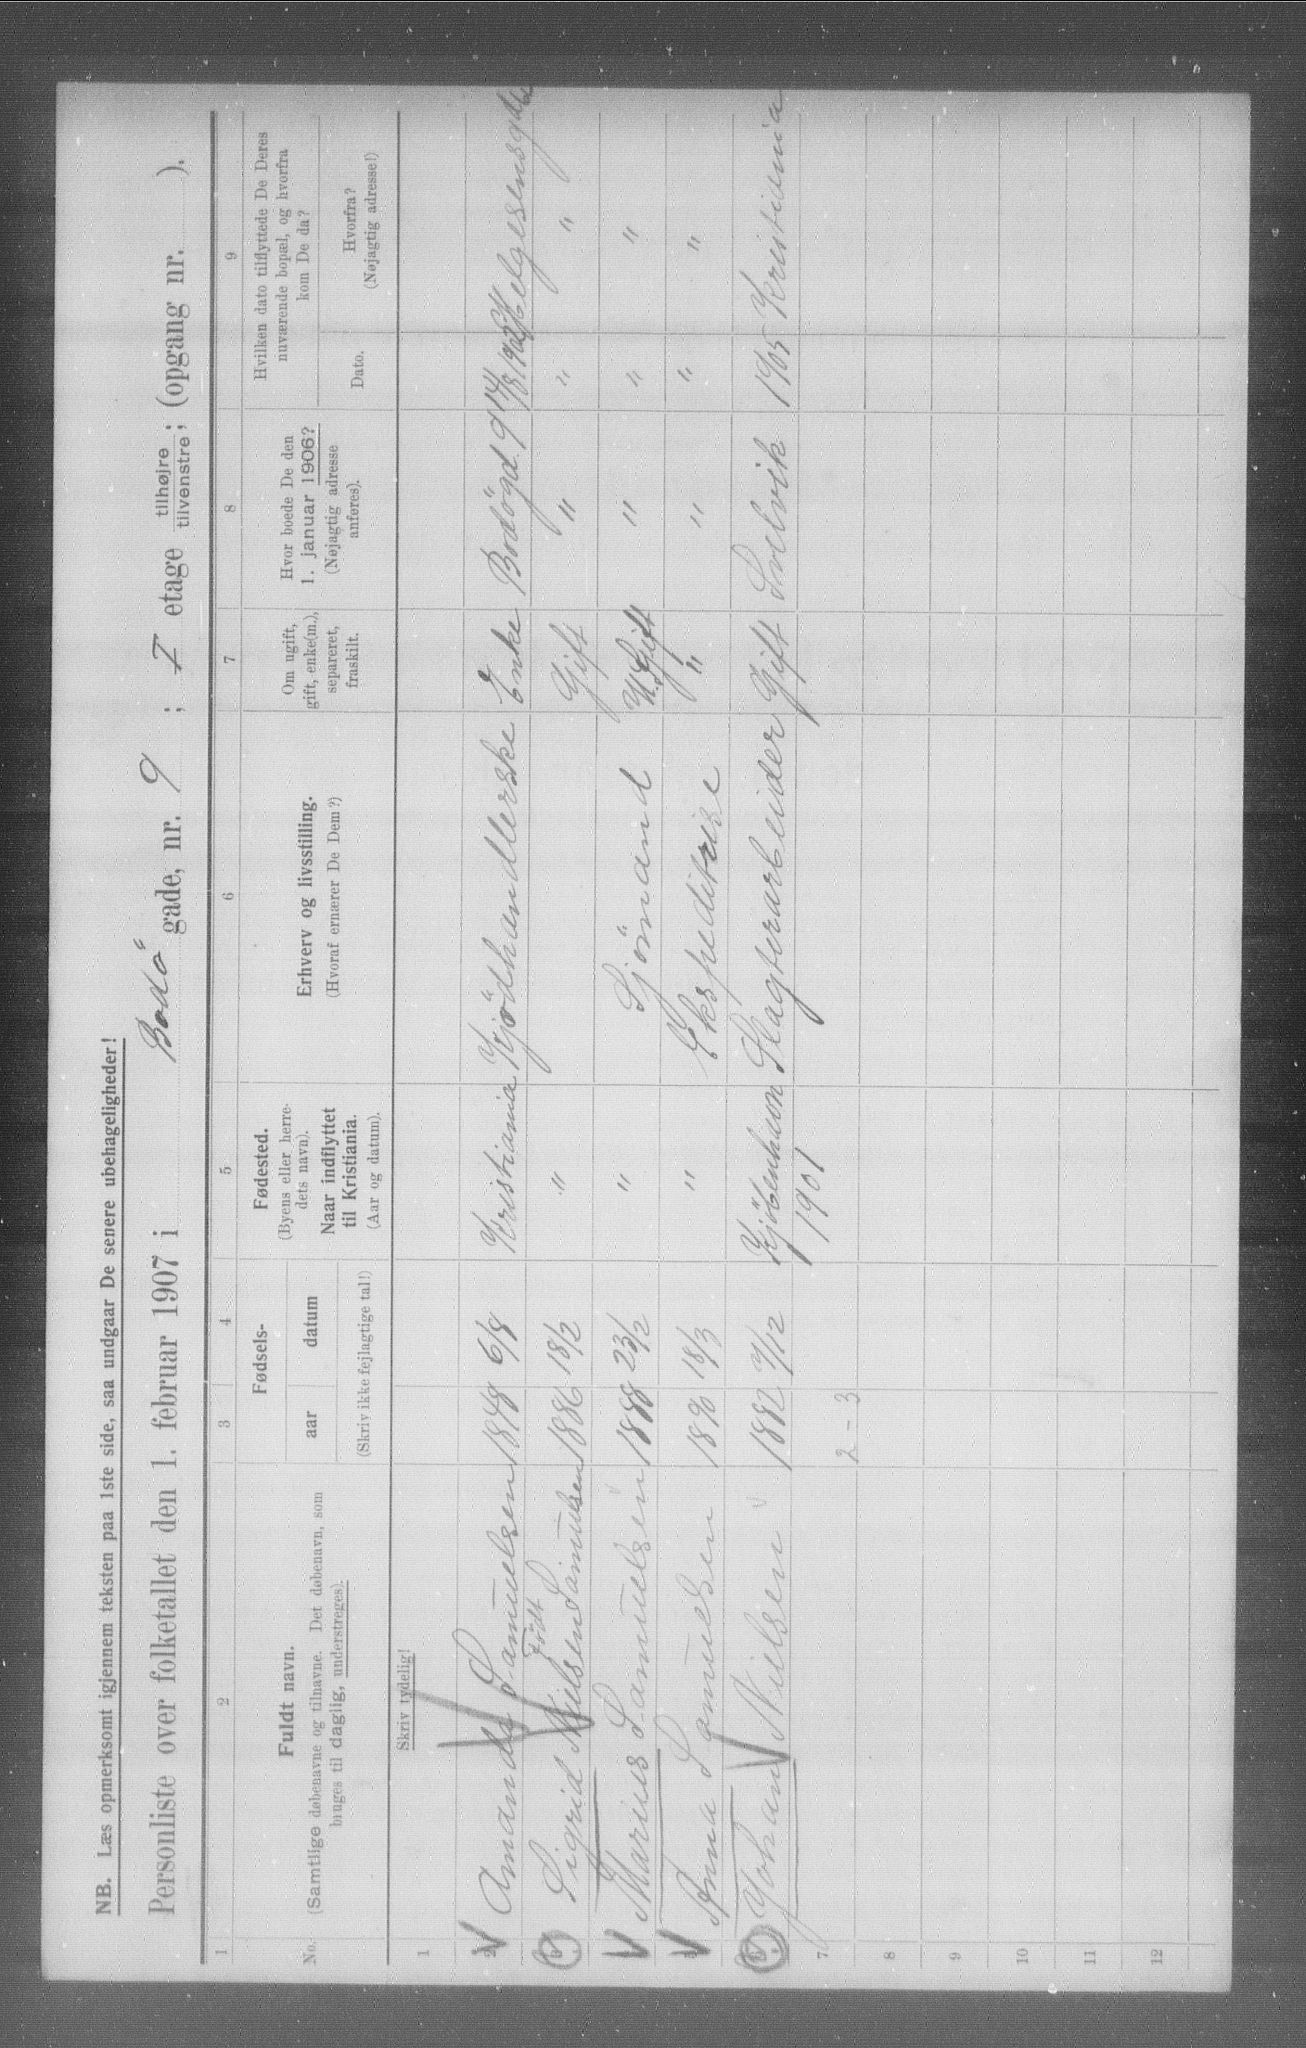 NB. Læs opmerksomt igjennem teksten paa 1ste side, saa undgaar De senere ubehageligheder!
Personliste over folketallet den 1. februar 1907 i Bodö gade, nr. 9 ; I etage tilhøjre tilvenstre ; (opgang nr. ).
1 2 3 4 5 6 7 8 9
No. Fuldt navn. (Samtlige døbenavne og tilnavne. Det døbenavn, som bruges til daglig, understreges).
Fødsels- aar datum (Skriv ikke fejlagtige tal!)
Fødested. (Byens eller herredets navn). Naar indflyttet til Kristiania. (Aar og datum).
Erhverv og livsstilling. (Hvoraf ernærer De Dem?)
Om ugift, gift, enke(m.), separeret, fraskilt.
Hvor boede De den 1. januar 1906? (Nøjagtig adresse anføres).
Hvilken dato tilflyttede De Deres nuværende bopæl, og hvorfra kom De da?
Dato. Hvorfra? (Nøjagtig adresse!)
Skriv tydelig!
1
2 Amanda Samuelsen 1848 6/8 Kristiania Kjödhandlerske Enke Bodögd. 9
Sigrid Nielsen Födt Samuelsen 1886 18/2 " Gift " " "
Marius Samuelsen 1888 23/2 " Sjömand U.Gift " " "
Anna Samuelsen 1890 18/3 " Ekspeditrise " " " "
Johan Nielsen 1882 Kjöbenhavn 1901 Slagterarbeider Gift Svelvik Kristiania
2 - 3
7.
8
9
10
11
12